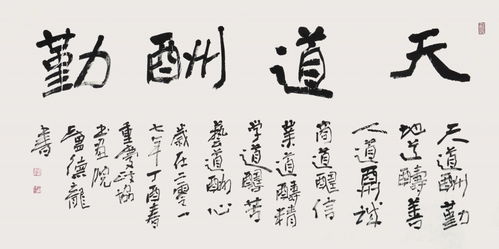 天道酬勤
天道酬勤
地道酬善
人道酬诚
商道酬信
業道酬精
学道酬苦
藝道酬心
歲在二零一
七年丁酉春
重慶政协
书画院
盧德龍
書